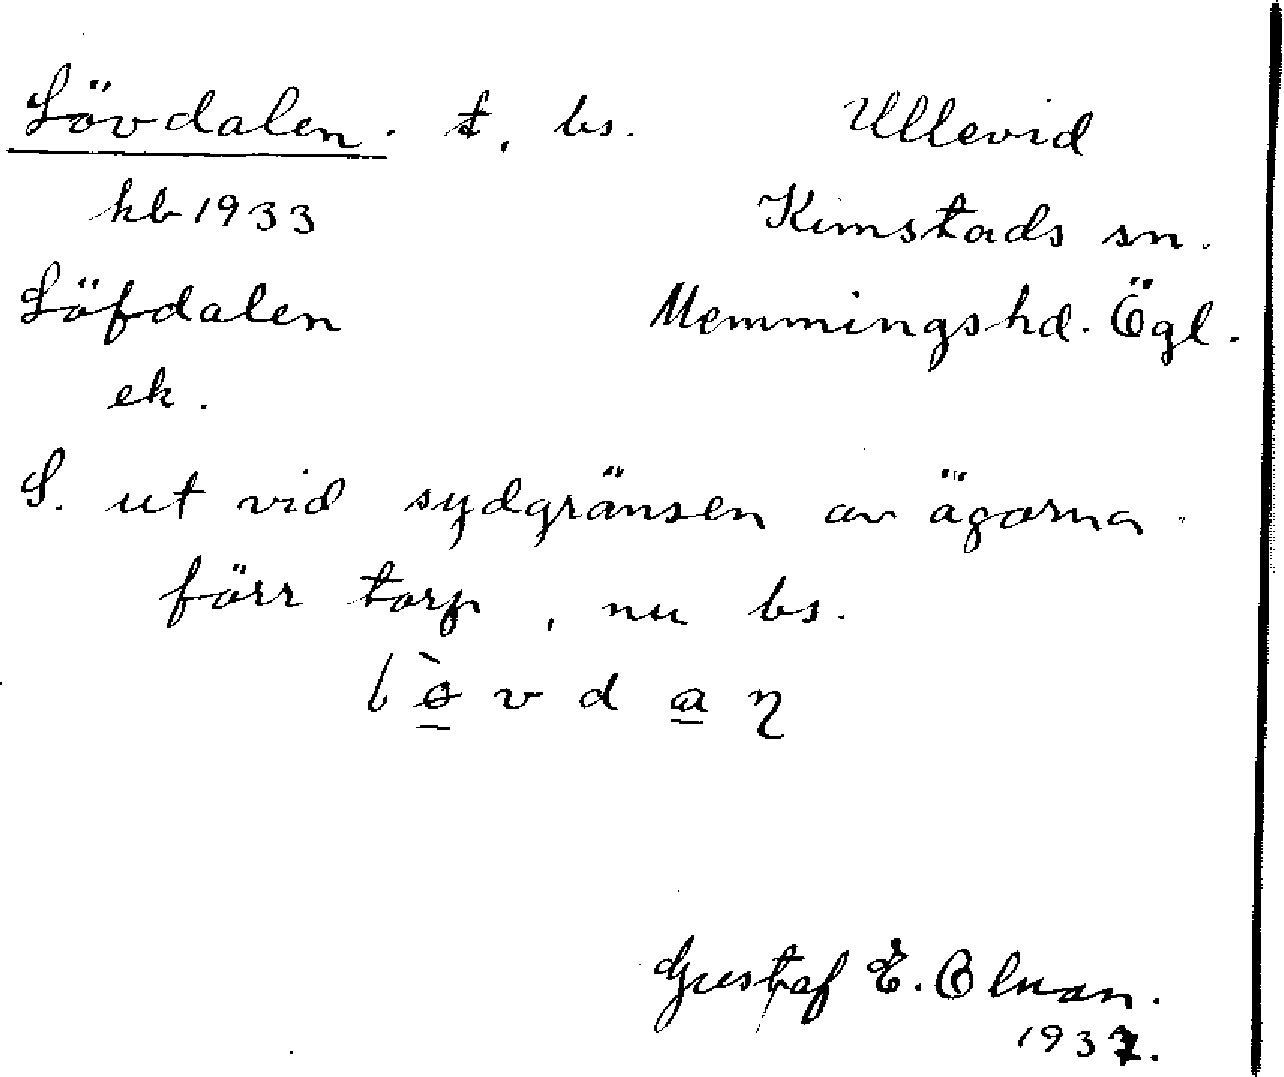 Lövdalen. t, bs. Ullevid
kb 1933 Kimstads sn.
Löfdalen Memmings hd. Ögl.
ek.
S. ut vid sydgränsen av ägorna.
förr torp, nu bs.
Gustaf E.
193